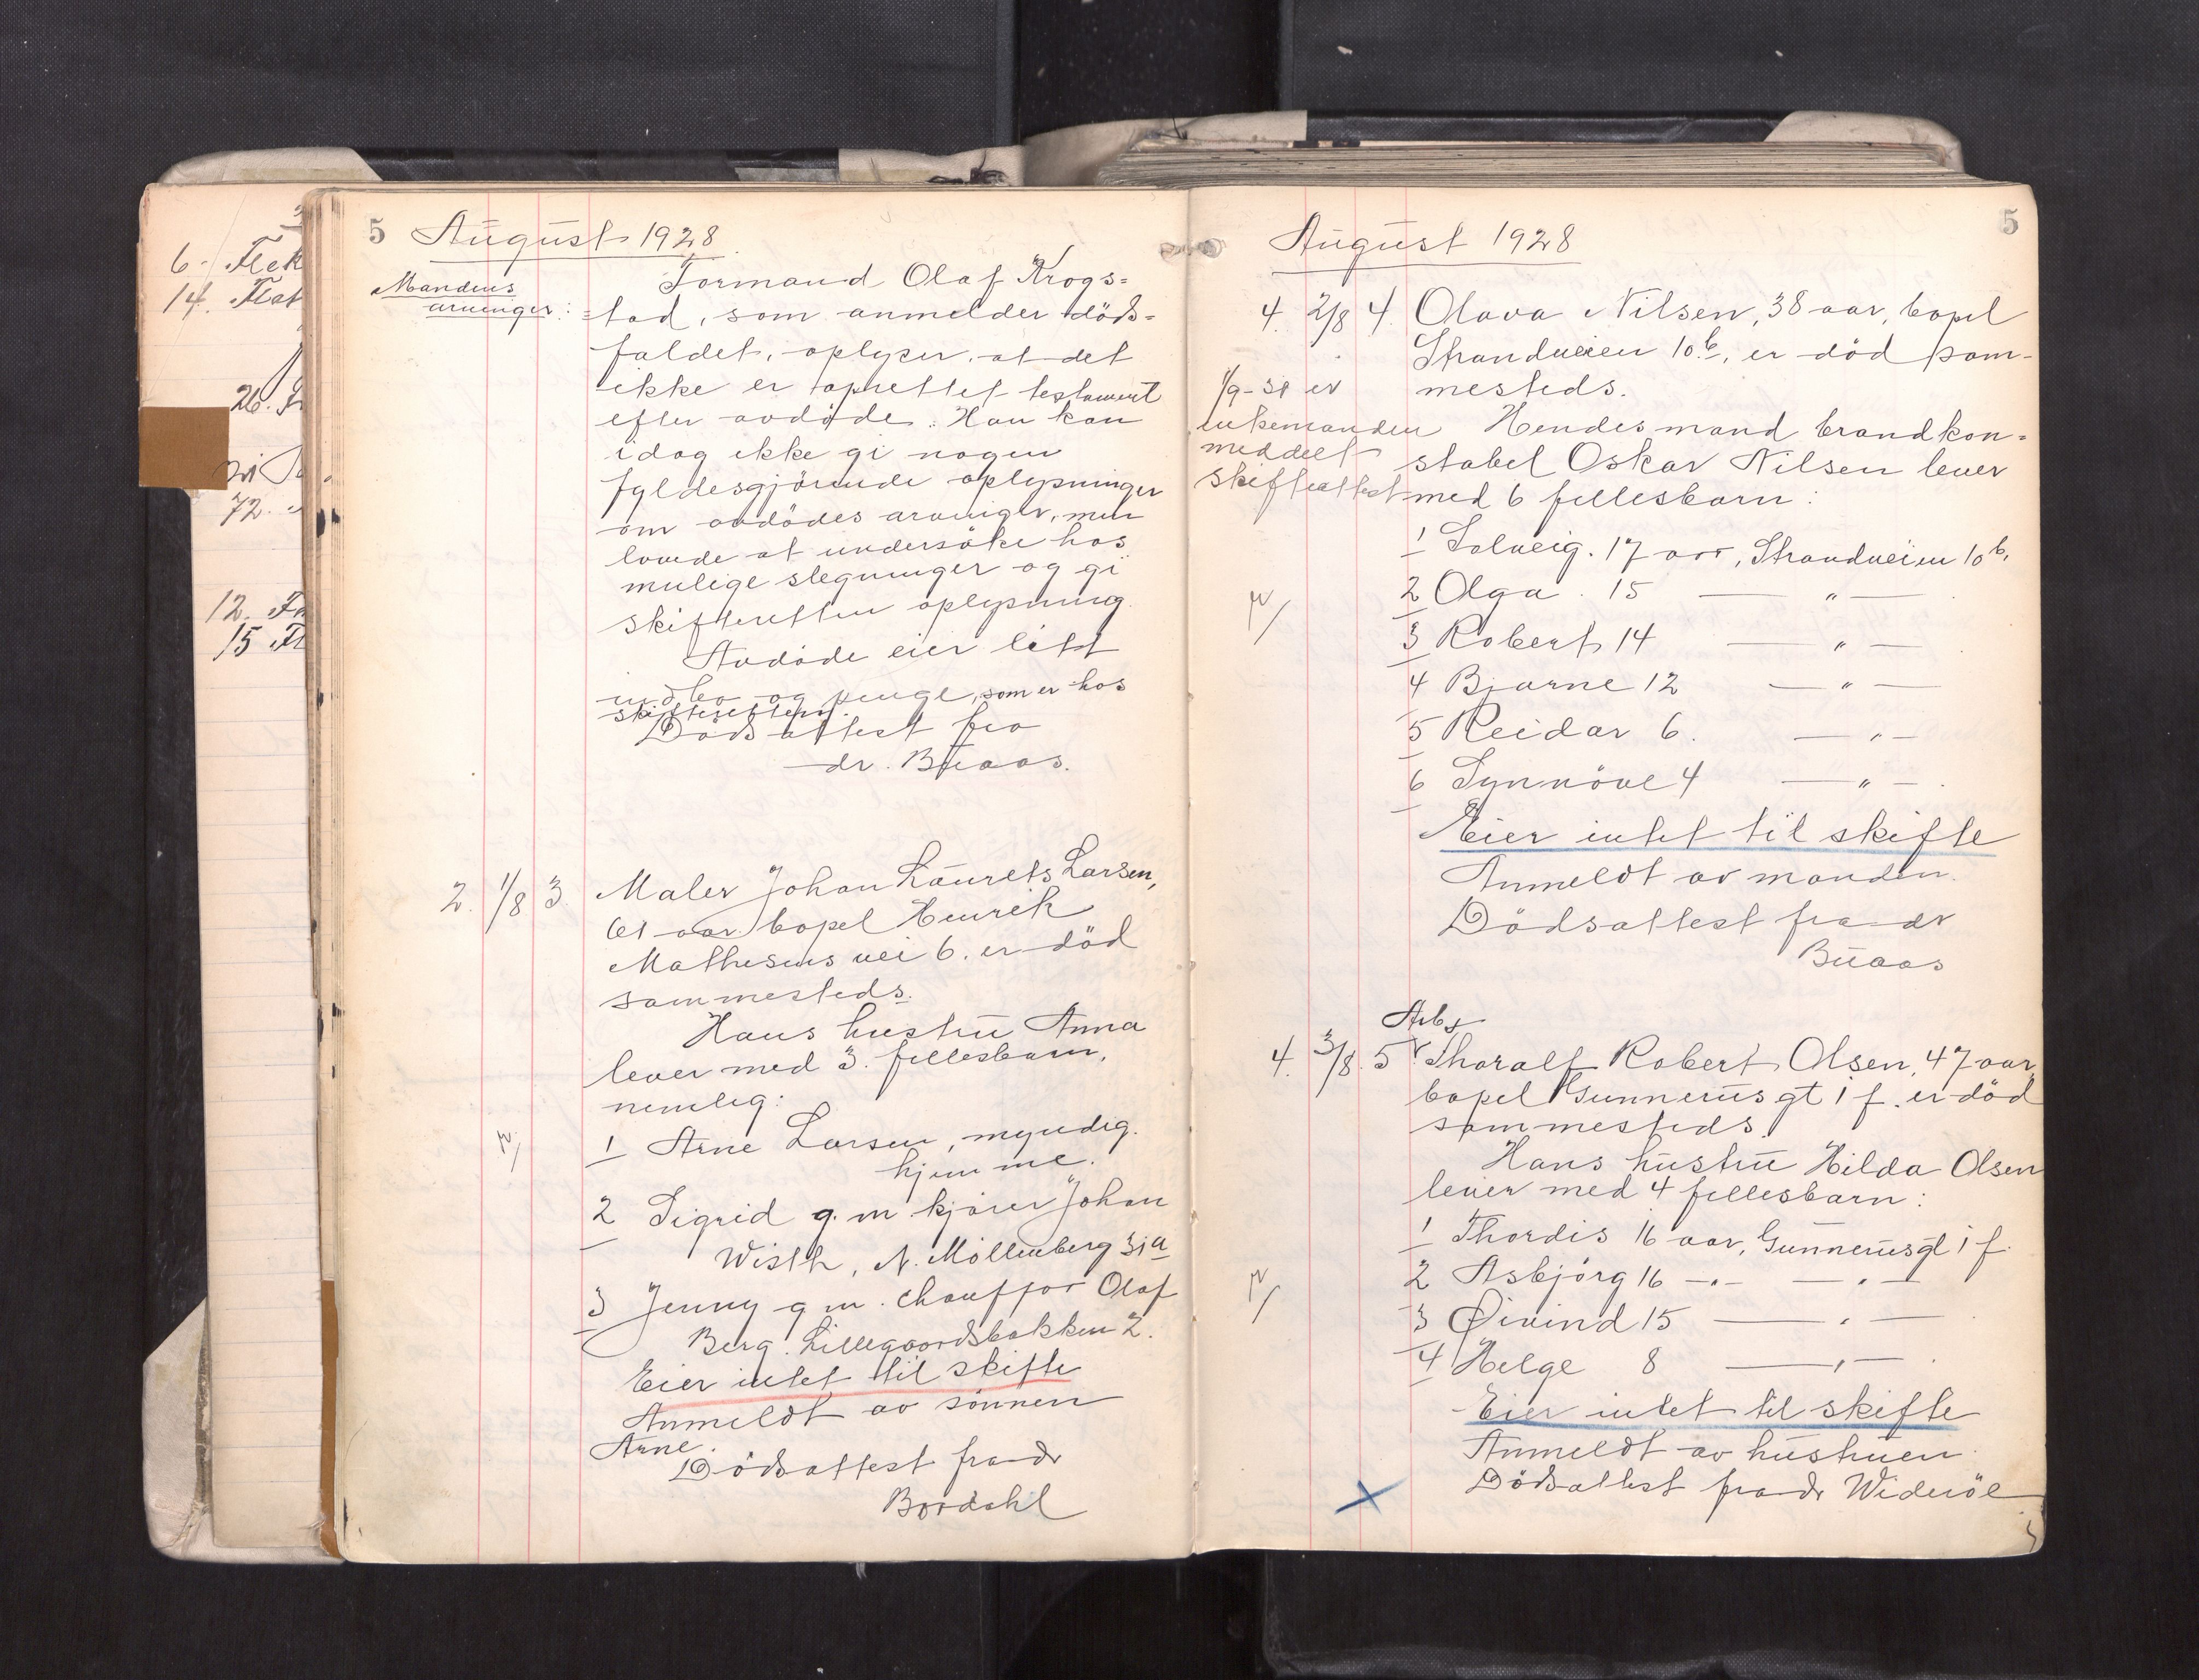 6. Flek
14. Flat
26.
72.
12.
15
5 August 1928
Mandens
arvinger:
Formand Olaf Krogs=
=tad, som anmelder döds=
faldet, oplyser, at det
ikke er oprettet testament
efter avdöde. Han kan
idag ikke gi nogen
fyldesgjörende oplysninger
om avdödes arvinger, men
lovede at undersöke hos
mulige slegninger og gi
skifteretten oplysning.
Avdöde eier litt
indbo og penge, som er hos
skifteretten.
Dödsattest fra
dr. Buaas.
2. 1/8 3. Maler Johan Laurets Larsen,
61 aar bopel Henrik
Mathesens vei 6. er död
sammesteds.
Hans hustru Anna
lever med 3. fellesbarn,
nemlig:
1 Arne Larsen, myndig.
hjemme.
2 Sigrid g. m. kjører Johan
Wisth, N. Möllenberg 31a
3 Jenny g m. chauffør Olaf
Berg. Lillegaardsbakken 2.
Eier intet til skifte
Anmeldt av sönnen
Arne.
Dödsattest fra dr
Bordahl
5
August 1928
4. 2/8 4. Olava Nilsen, 38 aar, bopel
Strandveien 10b, er död sam-
mesteds.
1/9-31 er
enkemanden
meddelt
skifteattest
Hendes mand brandkon=
stabel Oskar Nilsen lever
med 6 fellesbarn:
1 Solveig. 17 aar, Strandveien 10b.
2 Olga. 15 — " —
3 Robert 14 — " —
4 Bjarne 12 — " —
5 Reidar 6. — " —
6 Synnöve 4 — " —
Eier intet til skifte
Anmeldt av manden.
Dödsattest fra dr
Buaas
Arb.
4. 3/8. 5 Thoralf Robert Olsen, 47 aar,
bopel Gunnerus gt 1 f. er död
sammesteds.
Hans hustru Hilda Olsen
lever med 4 fellesbarn:
1 Thordis 16 aar, Gunnerusgt 1 f.
2 Asbjörg 16 — " — — " —
3 Øivind 15 — " —
4 Helge 8 — " —
Eier intet til skifte
Anmeldt av hustruen.
Dödsattest fra dr Wideröe